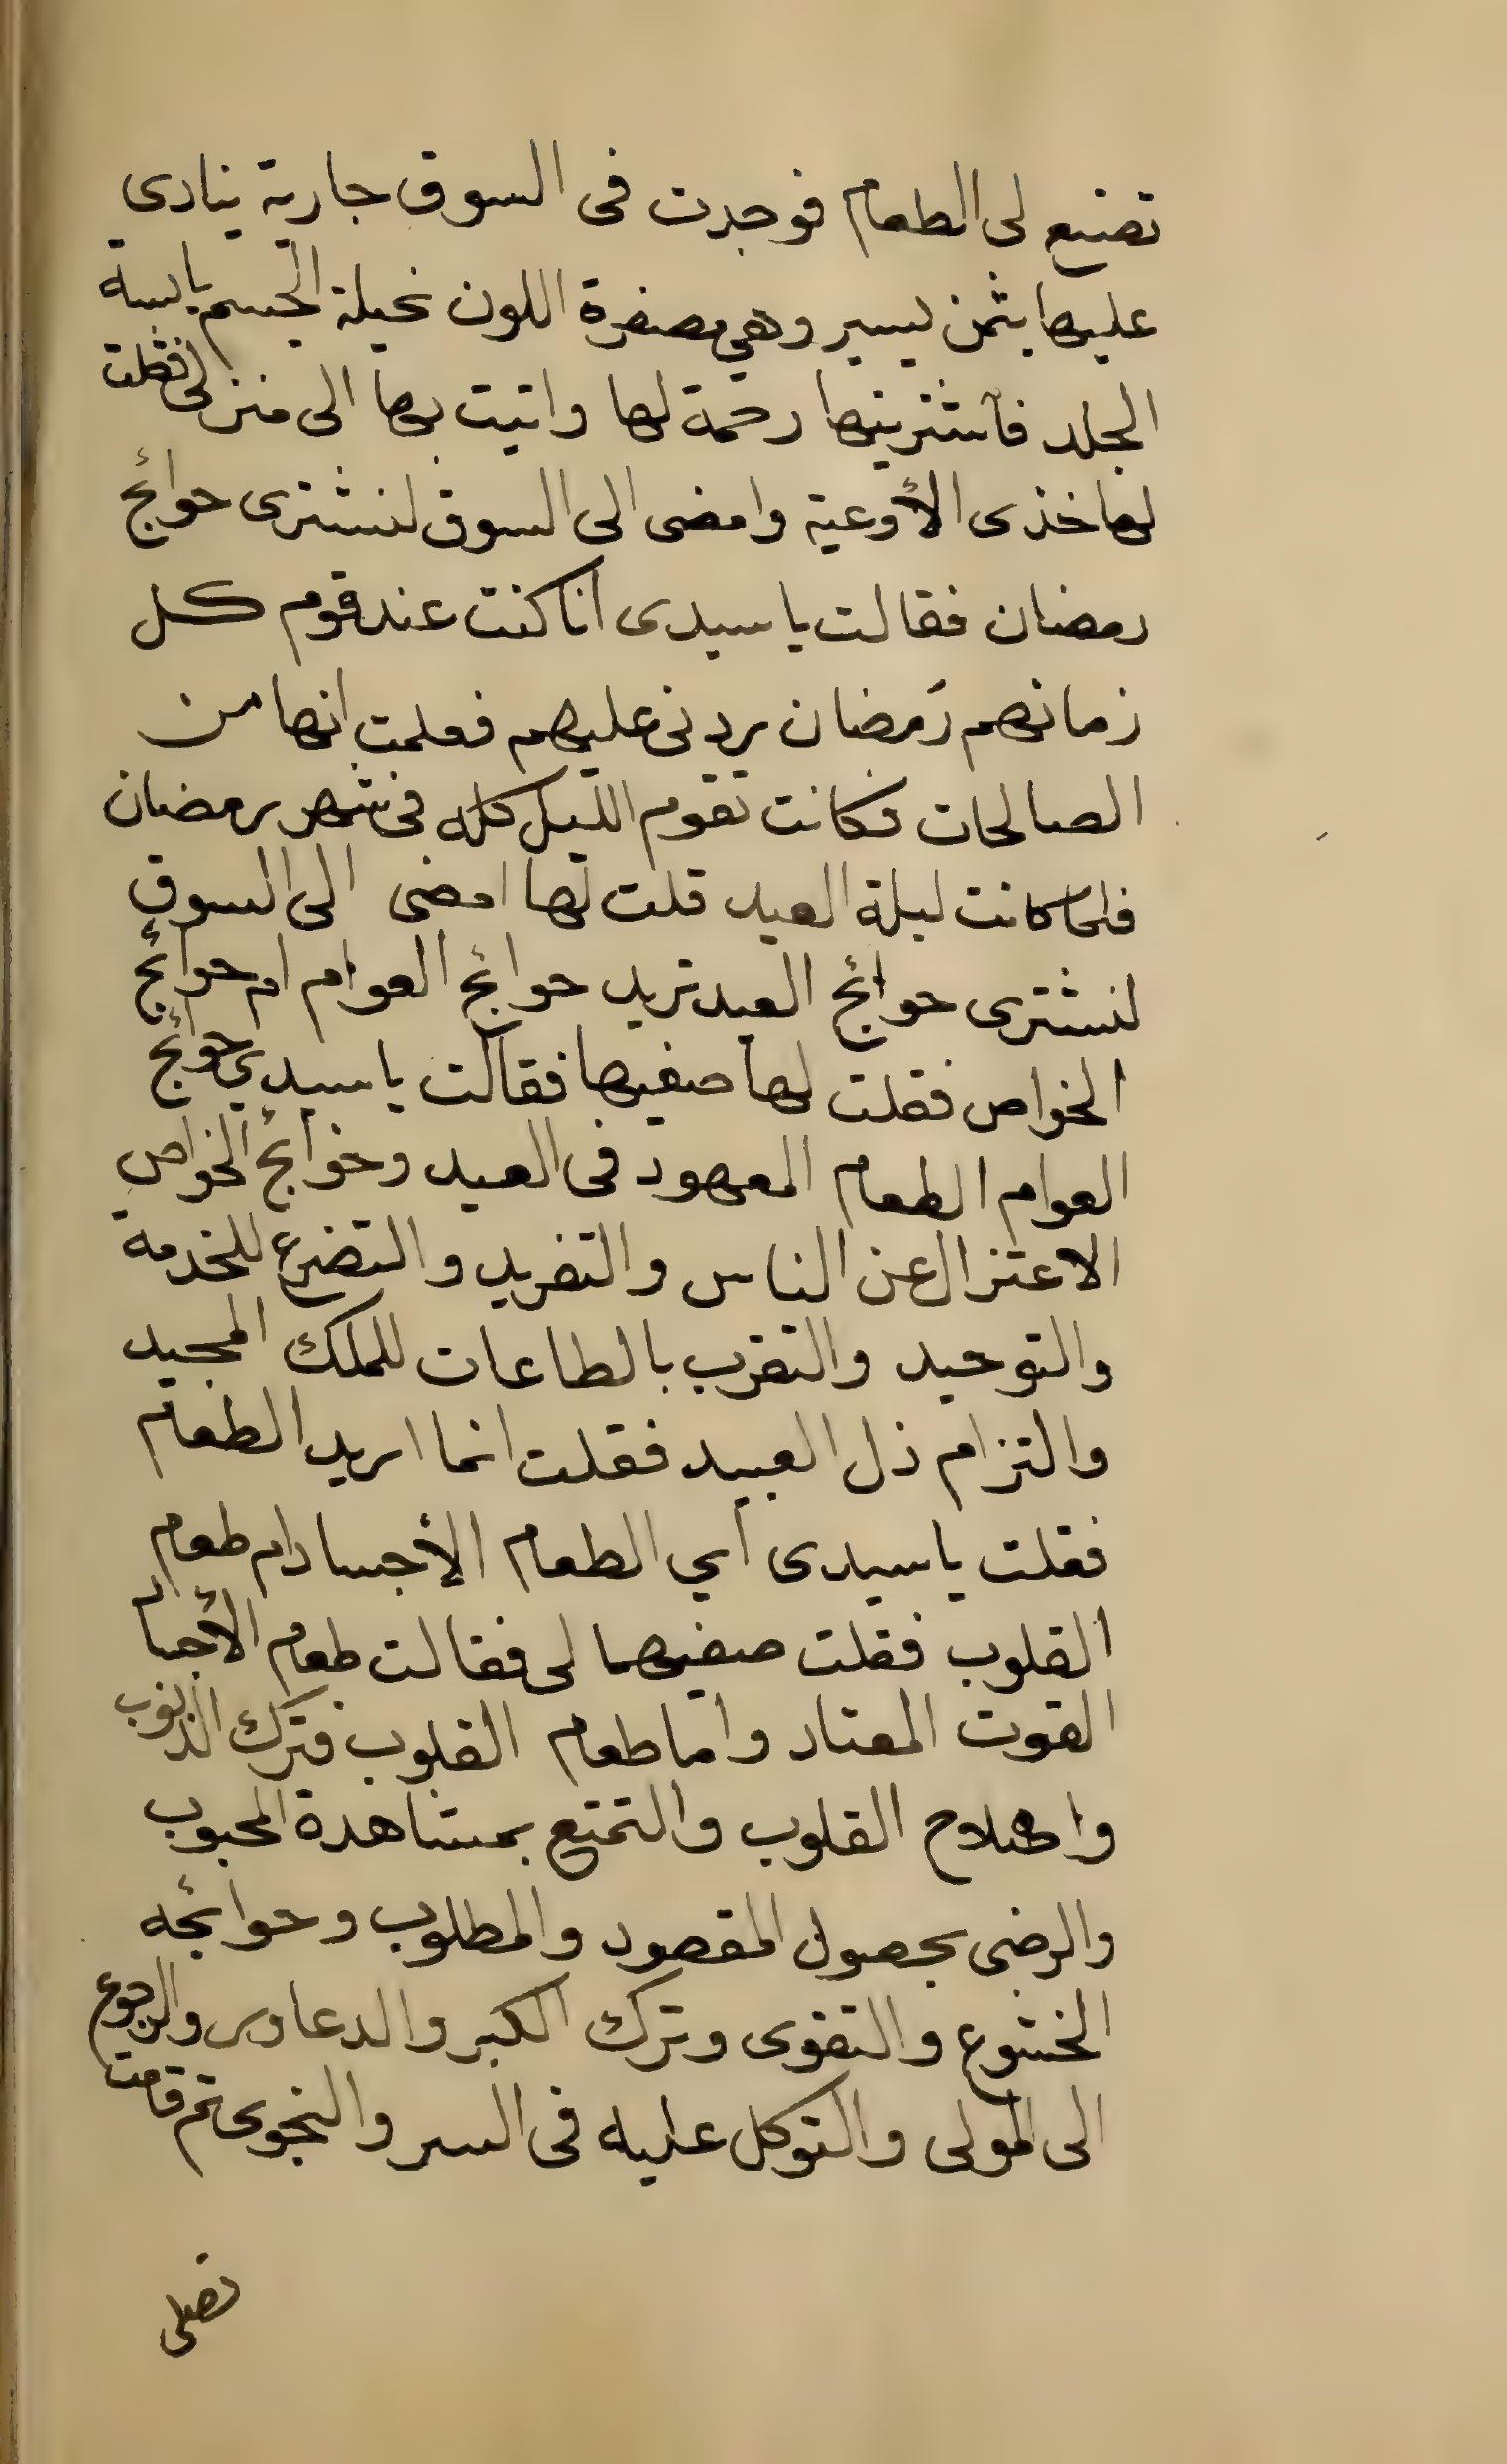 تصنع لى الطعام فوجدت فى السوق جارية ينادي
عليها بثمن يسير وهي مصفرة اللون نحيلة الجسم يابسة
الجلد فاشتريتها رحمة لها واتيت بها الى منزلى فقلت
لها خذى الأوعية وامضى الى السوق لنشترى حوائج
رمضان فقالت يا سيدى انا كنت عند قوم كل
زمانهم رمضان يردنى عليهم فعلمت انها من
الصالحات فكانت تقوم الليل كله فى شهر رمضان
فلما كانت ليلة العيد قلت لها امضى الى السوق
لنشترى حوائج العيد تريد حوائج العوام ام حوائج
الخواص فقلت لها صفيها فقالت يا سيدي حوائج
العوام الطعام المعهود فى العيد وخوائج الخواص
الاعتزال عن الناس والتفريد والتضرع للخدمة
والتوحيد والتقرب بالطاعات للملك المجيد
والتزام ذل العبيد فقلت انما اريد الطعام
فقلت يا سيدى اي الطعام الأجساد ام طعام
القلوب فقلت صفيهما لى فقالت طعام الأجسام
القوت المعتاد واما طعام القلوب فترك الذنوب
واصلاح القلوب والتمتع بمشاهدة المحبوب
والرضى بحصول المقصود والمطلوب وحوائجه
الخشوع والتقوى وترك الكبر والدعاوى والرجوع
الى المولى والتوكل عليه فى السر والنجوى ثم قامت
تصلى